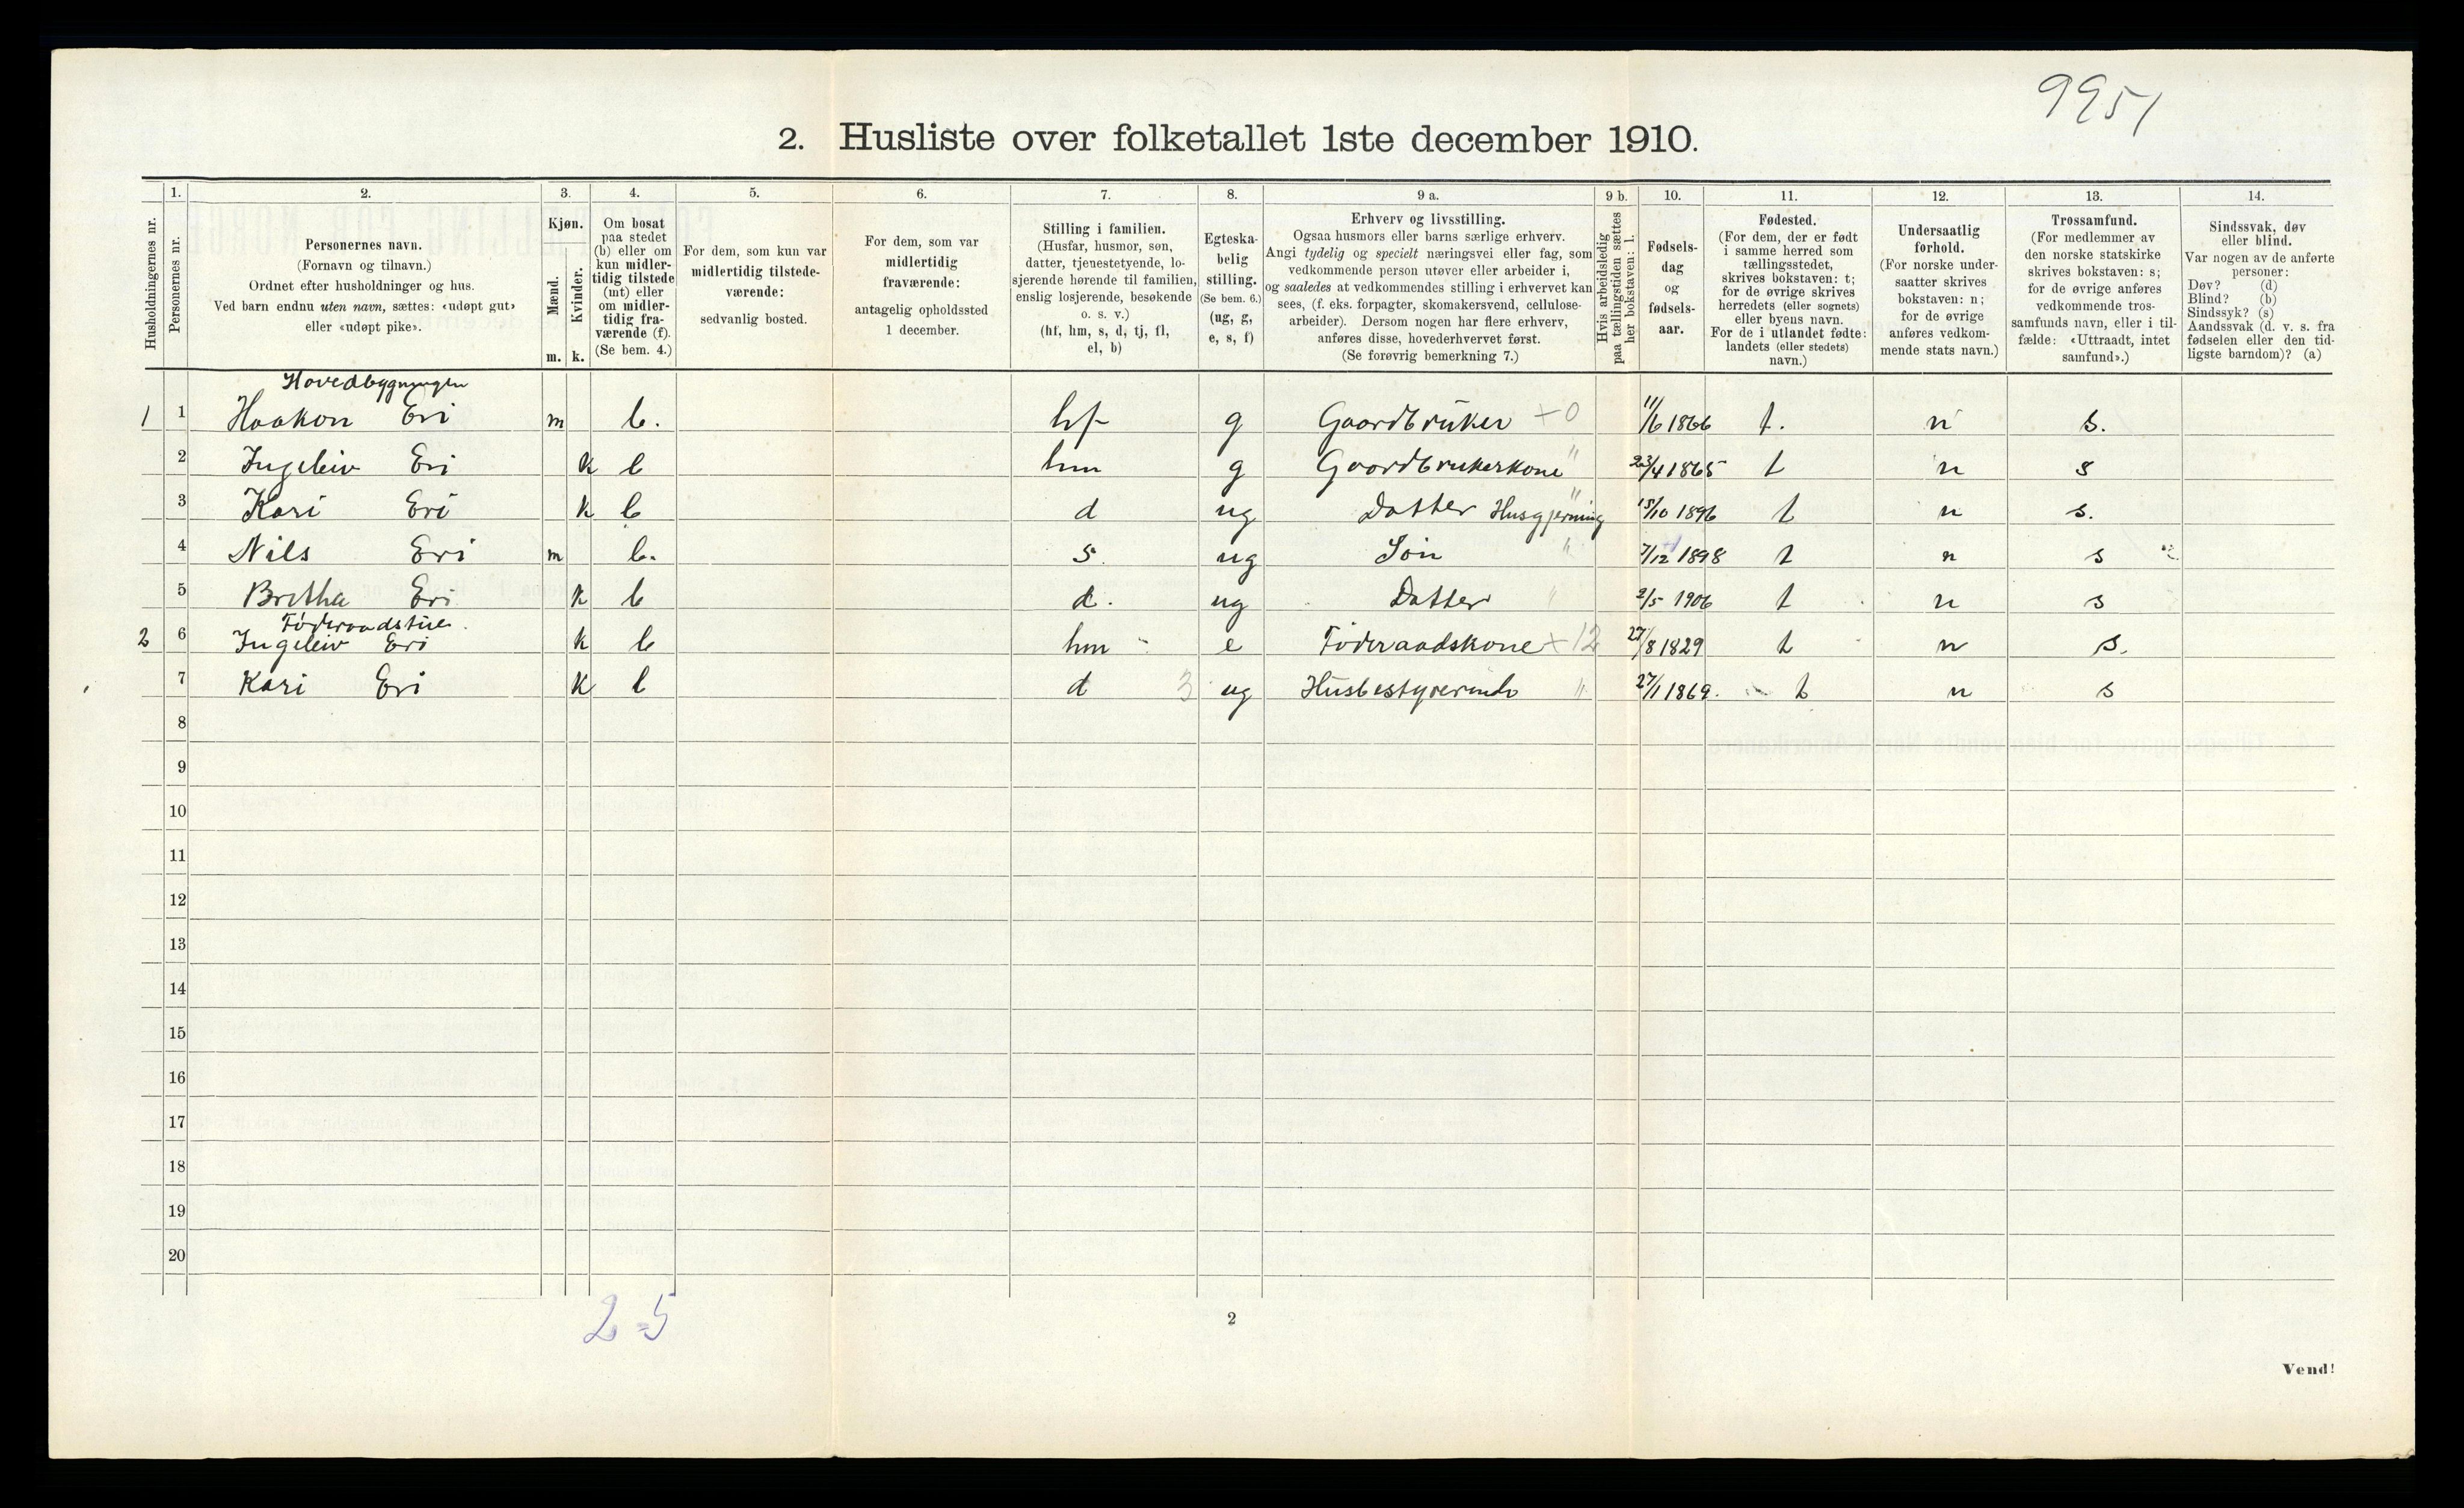 9951
2. Husliste over folketallet 1ste december 1910.
Husholdningernes nr.
1. Personernes nr.
2. Personernes navn.
(Fornavn og tilnavn.)
Ordnet efter husholdninger og hus.
Ved barn endnu uten navn, sættes: «udøpt gut»
eller «udøpt pike».
3. Kjøn.
Mænd. m.
Kvinder. k.
4. Om bosat
paa stedet
(b) eller om
kun midler-
tidig tilstede
(mt) eller
om midler-
tidig fra-
værende (f).
(Se bem. 4.)
5. For dem, som kun var
midlertidig tilstede-
værende:
sedvanlig bosted.
6. For dem, som var
midlertidig
fraværende:
antagelig opholdssted
1 december.
7. Stilling i familien.
(Husfar, husmor, søn,
datter, tjenestetyende, lo-
sjerende hørende til familien,
enslig losjerende, besøkende
o. s. v.)
(hf, hm, s, d, tj, fl,
el, b)
8. Egteska-
belig
stilling.
(Se bem. 6.)
(ug, g,
e, s, f)
9 a. Erhverv og livsstilling.
Ogsaa husmors eller barns særlige erhverv.
Angi tydelig og specielt næringsvei eller fag, som
vedkommende person utøver eller arbeider i,
og saaledes at vedkommendes stilling i erhvervet kan
sees, (f. eks. forpagter, skomakersvend, cellulose-
arbeider). Dersom nogen har flere erhverv,
anføres disse, hovederhvervet først.
(Se forøvrig bemerkning 7.)
9 b. Hvis arbeidsledig
paa tællingstiden sættes
her bokstaven: l.
10. Fødsels-
dag
og
fødsels-
aar.
11. Fødested.
(For dem, der er født
i samme herred som
tællingsstedet,
skrives bokstaven: t;
for de øvrige skrives
herredets (eller sognets)
eller byens navn.
For de i utlandet fødte:
landets (eller stedets)
navn.)
12. Undersaatlig
forhold.
(For norske under-
saatter skrives
bokstaven: n;
for de øvrige
anføres vedkom-
mende stats navn.)
13. Trossamfund.
(For medlemmer av
den norske statskirke
skrives bokstaven: s;
for de øvrige anføres
vedkommende tros-
samfunds navn, eller i til-
fælde: «Uttraadt, intet
samfund».)
14. Sindssvak, døv
eller blind.
Var nogen av de anførte
personer:
Døv? (d)
Blind? (b)
Sindssyk? (s)
Aandssvak (d. v. s. fra
fødselen eller den tid-
ligste barndom)? (a)
Hovedbygningen
1 1 Haakon Eri m b. hf g Gaardbruker +0 11/6 1866 t. n s.
2 Ingeleiv Eri k b hm g Gaardbrukerkone " 23/4 1865 t n s
3 Kari Eri k b d ug Datter Husgjerning " 15/10 1896 t n s.
4 Nils Eri m b. s. ug Søn " 7/12 1898 t n s
5 Britha Eri k b d. ug Datter " 2/5 1906 t n s
Føderaadstue.
2 6 Ingeleiv Eri k b hm e Føderaadskone +12 27/8 1829 t n s.
7 Kari Eri k b d 3 ug Husbestyrerinde " 27/1 1869. t n s
8
9
10
11
12
13
14
15
16
17
18
19
20
2-5
2
Vend!